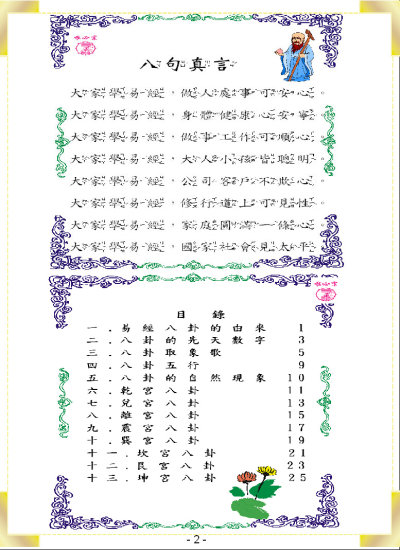 唯心宗
八句真言
大家學易經，做人處事可安心。
大家學易經，身體健康心安寧
大家學易經，做事工作可順心
大家學易經，大人小孩皆聰明
大家學易經，公司客戶不欺心
大家學易經，修行道上可見性
大家學易經，家庭圓滿一條心
大家學易經，國家社會見太平
唯心宗
目 錄
一．易經八卦的由來 1
二．八卦的先天數字 3
三．八卦取象歌 5
四．八卦五行 9
五．八卦的自然現象 10
六．乾宮八卦 11
七．兌宮八卦 13
八．離宮八卦 15
九．震宮八卦 17
十．巽宮八卦 19
十一．坎宮八卦 21
十二．艮宮八卦 23
十三．坤宮八卦 25
- 2 -